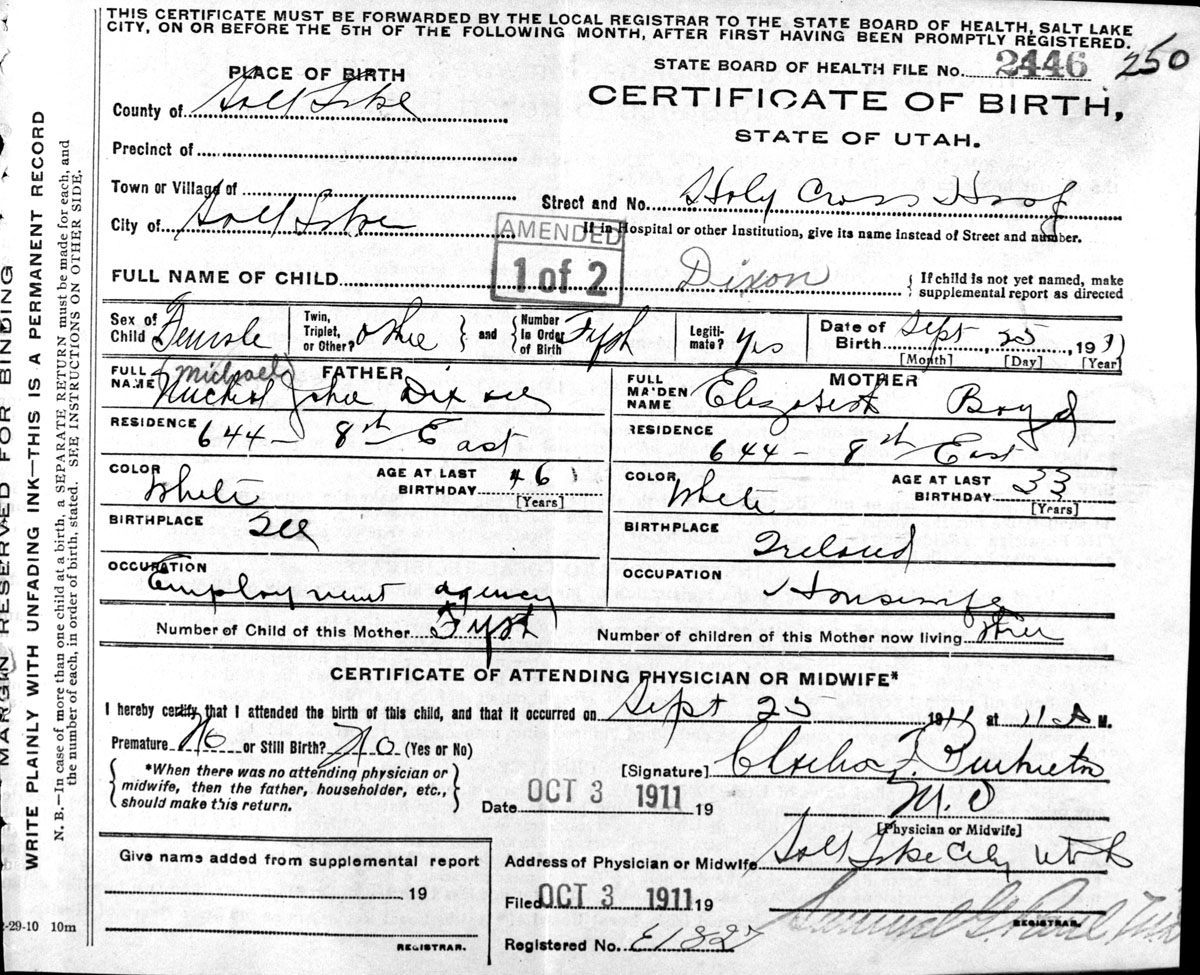 THIS CERTIFICATE MUST BE FORWARDED BY THE LOCAL REGISTRAR TO THE STATE BOARD OF HEALTH, SALT LAKE
CITY, ON OR BEFORE THE 5TH OF THE FOLLOWING MONTH, AFTER FIRST HAVING BEEN PROMPTLY REGISTERED.
STATE BOARD OF HEALTH FILE No. 2446 250
PLACE OF BIRTH
CERTIFICATE OF BIRTH,
STATE OF UTAH.
County of Salt Lake
Precinct of
Town or Village of
Street and No. Holy Cross Hosp
City of Salt Lake
If in Hospital or other Institution, give its name instead of Street and number.
AMENDED
1 of 2
FULL NAME OF CHILD Dixon
{ If child is not yet named, make supplemental report as directed
Sex of Child Female Twin, Triplet, or Other? and Number in Order of Birth Legiti-mate? Yes Date of Birth Sept 25, 1911
[Month] [Day] [Year]
FULL NAME FATHER Michael John Dixon
FULL MAIDEN NAME MOTHER Elizabeth Boyd
RESIDENCE 644 - 8th East
RESIDENCE 644 - 8th East
COLOR White AGE AT LAST BIRTHDAY 46 [Years]
COLOR White AGE AT LAST BIRTHDAY 33 [Years]
BIRTHPLACE Ill
BIRTHPLACE Ireland
OCCUPATION Employment agency
OCCUPATION Housewife
Number of Child of this Mother
Number of children of this Mother now living
CERTIFICATE OF ATTENDING PHYSICIAN OR MIDWIFE*
I hereby certify that I attended the birth of this child, and that it occurred on Sept 25 1911 at 11 M.
Premature No or Still Birth? No (Yes or No)
{ *When there was no attending physician or midwife, then the father, householder, etc., should make this return. }
[Signature]
M.D
[Physician or Midwife]
Date OCT 3 1911 19
Give name added from supplemental report
19
REGISTRAR.
Address of Physician or Midwife Salt Lake City Utah
Filed OCT 3 1911 19
Samuel G. Paul M.D.
REGISTRAR.
Registered No. E1827
MARGIN RESERVED FOR BINDING
WRITE PLAINLY WITH UNFADING INK—THIS IS A PERMANENT RECORD
N. B.—In case of more than one child at a birth, a SEPARATE RETURN must be made for each, and
the number of each, in order of birth, stated. SEE INSTRUCTIONS ON OTHER SIDE.
-29-10 10m